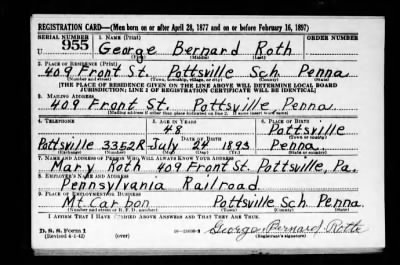 REGISTRATION CARD—(Men born on or after April 28, 1877 and on or before February 16, 1897)
SERIAL NUMBER 1. NAME (Print) ORDER NUMBER
U 955 George Bernard Roth
(First) (Middle) (Last)
2. PLACE OF RESIDENCE (Print)
409 Front St. Pottsville Sch. Penna.
(Number and street) (Town, township, village, or city) (County) (State)
[THE PLACE OF RESIDENCE GIVEN ON THE LINE ABOVE WILL DETERMINE LOCAL BOARD
JURISDICTION; LINE 2 OF REGISTRATION CERTIFICATE WILL BE IDENTICAL]
3. MAILING ADDRESS
409 Front St. Pottsville Penna.
[Mailing address if other than place indicated on line 2. If same insert word same]
4. TELEPHONE 5. AGE IN YEARS 6. PLACE OF BIRTH
48 Pottsville
DATE OF BIRTH (Town or county)
Pottsville 3352R July 24 1893 Penna.
(Exchange) (Number) (Mo.) (Day) (Yr.) (State or country)
7. NAME AND ADDRESS OF PERSON WHO WILL ALWAYS KNOW YOUR ADDRESS
Mary Roth 409 Front St. Pottsville, Pa.
8. EMPLOYER'S NAME AND ADDRESS
Pennsylvania Railroad.
9. PLACE OF EMPLOYMENT OR BUSINESS
Mt. Carbon Pottsville Sch. Penna.
(Number and street or R. F. D. number) (Town) (County) (State)
I AFFIRM THAT I HAVE VERIFIED ABOVE ANSWERS AND THAT THEY ARE TRUE.
D. S. S. Form 1 George Bernard Roth
(Revised 4-1-42) (over) (Registrant's signature)